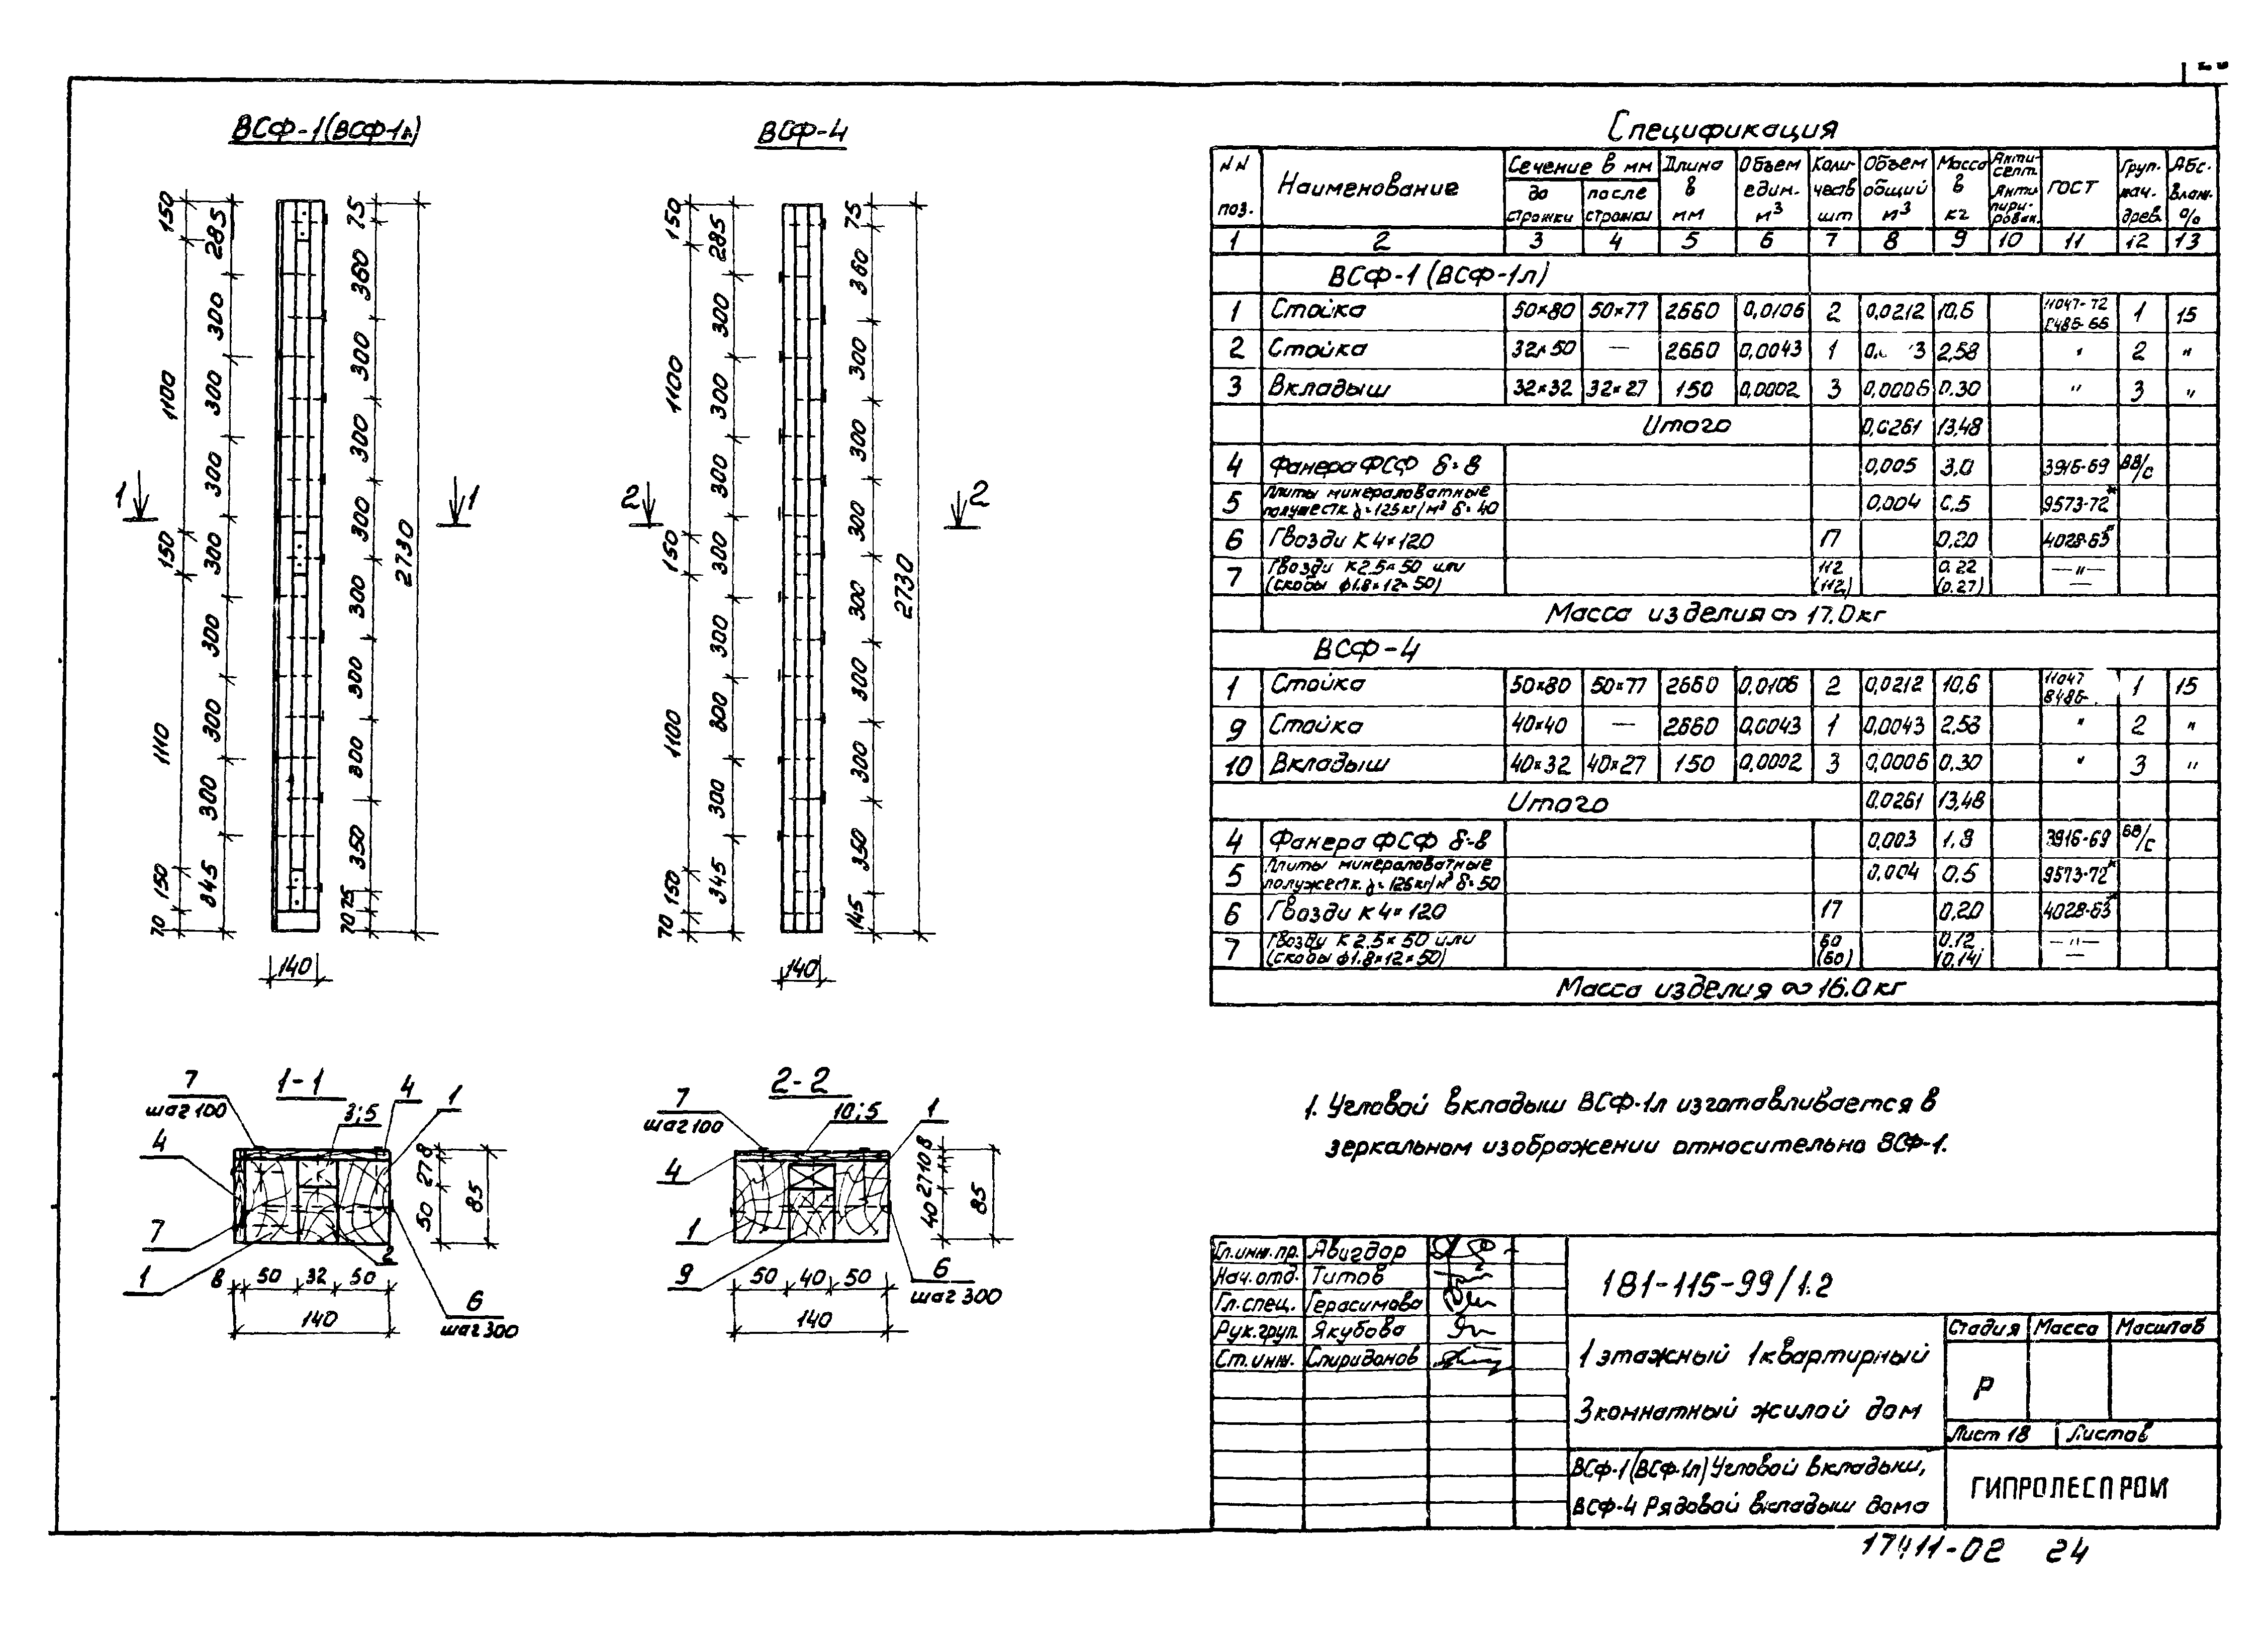 ВСФ-1 (ВСФ-1л)
150 1100 150 1110 150 70
285 300 300 300 300 300 300 300 345
75 360 300 300 300 300 300 300 350 75 70
2730
1 1
140
ВСФ-4
150 1100 150 1100 150 70
285 300 300 300 300 300 300 300 345
75 360 300 300 300 300 300 300 350 145
2730
2 2
140
1-1
7
шаг 100
3;5
4
1
4
7
1
2
27 8
50
85
8 50 32 50
140
6
шаг 300
2-2
7
шаг 100
10;5
1
4
1
9
40 27 10 8
85
50 40 50
140
6
шаг 300
Спецификация
NN поз. Наименование Сечение в мм до строжки после строжки Длина в мм Объем един. м³ Коли-честв шт Объем общий м³ Масса в кг Анти-септ. Анти-пири-рован. ГОСТ Груп. кач. древ. Абс. влаж. %
1 2 3 4 5 6 7 8 9 10 11 12 13
ВСФ-1 (ВСФ-1л)
1 Стойка 50×80 50×77 2660 0,0106 2 0,0212 10,6 11047-72 8486-66 1 15
2 Стойка 32×50 — 2660 0,0043 1 2,58 " 2 "
3 Вкладыш 32×32 32×27 150 0,0002 3 0,0006 0,30 " 3 "
Итого 0,0261 13,48
4 Фанера ФСФ δ=8 0,005 3,0 3916-69 ВВ/С
5 Плиты минераловатные полужестк. γ=125 кг/м³ δ=40 0,004 0,5 9573-72*
6 Гвозди К 4×120 17 0,20 4028-63*
7 Гвозди К 2.5×50 или (скобы ф1.8×12×50) 112 (112) 0.22 (0.27) —"—
Масса изделия ∾ 17.0 кг
ВСФ-4
1 Стойка 50×80 50×77 2660 0,0106 2 0,0212 10,6 11047 8486- 1 15
9 Стойка 40×40 — 2660 0,0043 1 0,0043 2,58 " 2 "
10 Вкладыш 40×32 40×27 150 0,0002 3 0,0006 0,30 " 3 "
Итого 0,0261 13,48
4 Фанера ФСФ δ=8 0,003 1,8 3916-69 ВВ/С
5 Плиты минераловатные полужестк. γ=125 кг/м³ δ=50 0,004 0.5 9573-72*
6 Гвозди К 4×120 17 0,20 4028-63*
7 Гвозди К 2.5×50 или (скобы ф1.8×12×50) 60 (60) 0.12 (0,14) —"—
Масса изделия ∾ 16.0 кг
1. Угловой вкладыш ВСФ-1л изготавливается в
зеркальном изображении относительно ВСФ-1.
Гл.инж.пр. Авигдор
Нач.отд. Титов
Гл.спец. Герасимова
Рук.груп. Якубова
Ст.инж. Спиридонов
181-115-99/1.2
1 этажный 1 квартирный
3 комнатный жилой дом
Стадия Масса Масштаб
Р
Лист 18 Листов
ВСФ-1 (ВСФ-1л) Угловой вкладыш,
ВСФ-4 Рядовой вкладыш дома
ГИПРОЛЕСПРОМ
17411-02 24